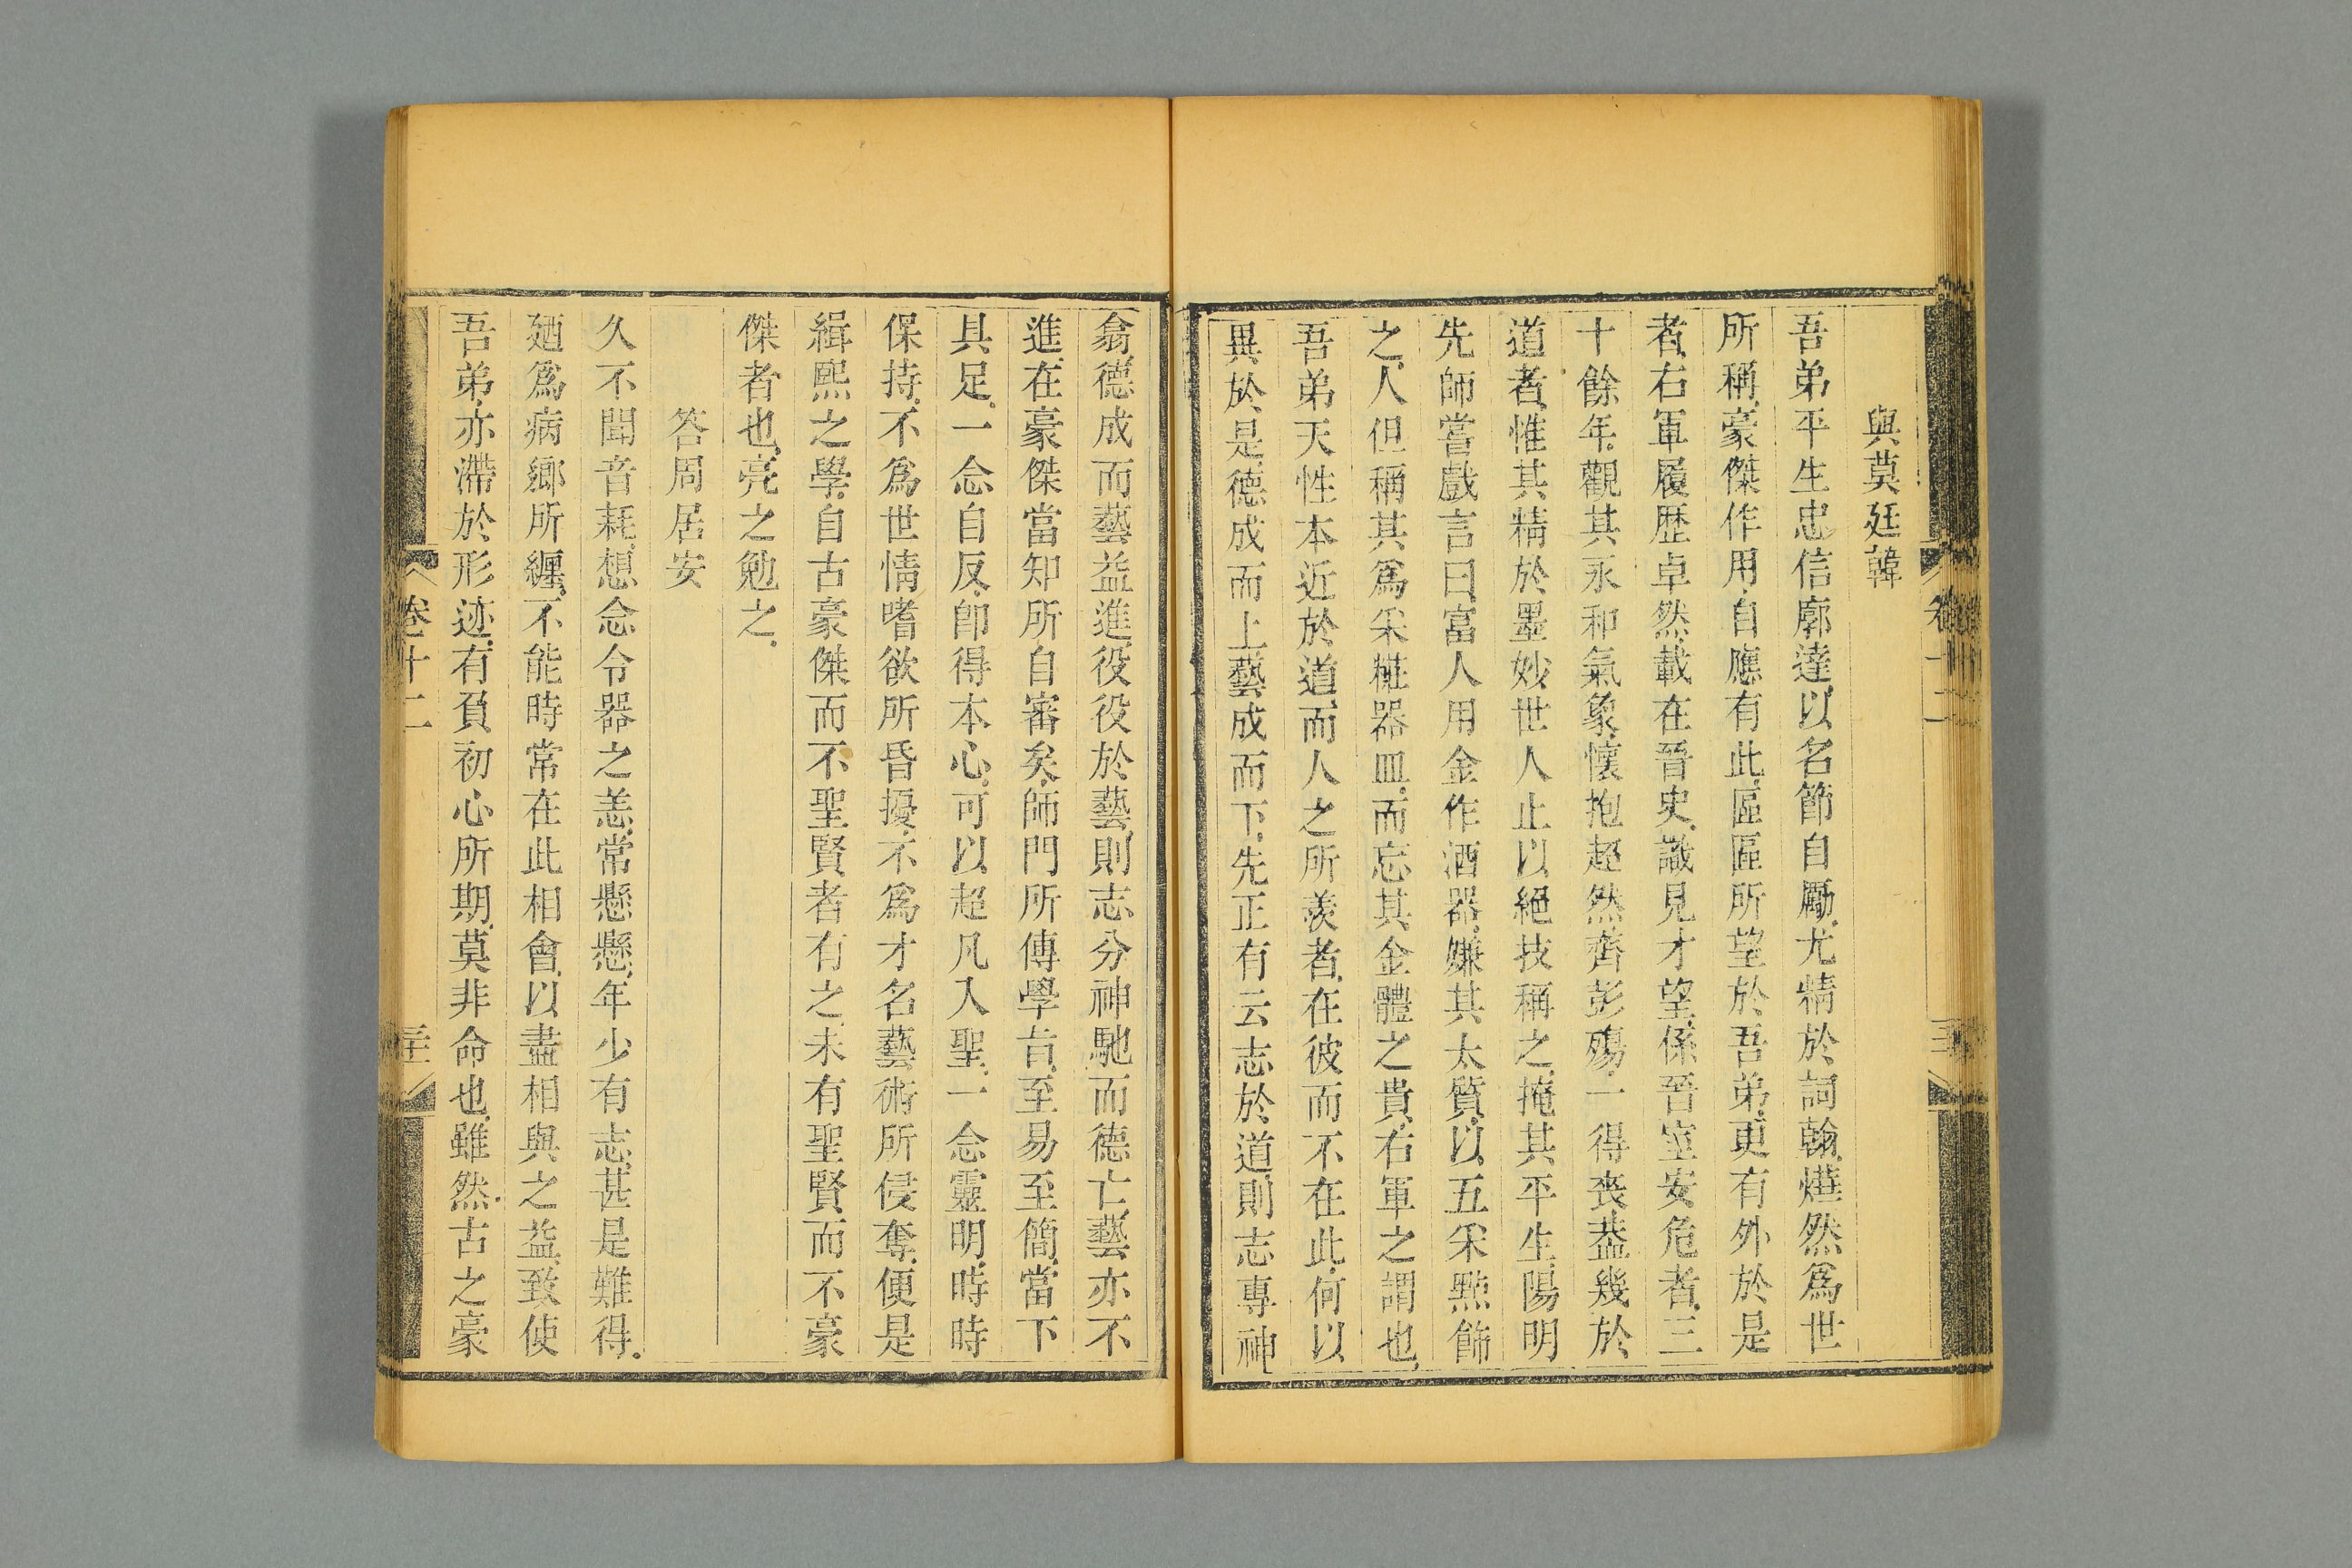 與莫廷韓
吾弟平生忠信廓達以名節自勵尤精於詞翰燁然爲世
所稱豪傑作用自應有此區區所望於吾弟更有外於是
者右軍履歷卓然載在晉史識見才望係晉室安危者三
十餘年觀其永和氣象懷抱超然齊彭殤一得喪葢幾於
道者惟其精於墨妙世人止以絕技稱之掩其平生陽明
先師嘗戲言曰富人用金作酒器嫌其太質以五采㸃飾
之人但稱其爲采粧器皿而忘其金體之貴右軍之謂也
吾弟天性本近於道而人之所羨者在彼而不在此何以
異於是德成而上藝成而下先正有云志於道則志專神
翕德成而藝益進役役於藝則志分神馳而德亡藝亦不
進在豪傑當知所自審矣師門所傳學旨至易至簡當下
具足一念自反卽得本心可以超凡入聖一念靈明時時
保持不爲世情嗜欲所昏擾不爲才名藝術所侵奪便是
緝熙之學自古豪傑而不聖賢者有之未有聖賢而不豪
傑者也亮之勉之
答周居安
久不聞音耗想念令器之恙常懸懸年少有志甚是難得
廼爲病鄉所纏不能時常在此相會以盡相與之益致使
吾弟亦滯於形迹有負初心所期莫非命也雖然古之豪
卷十二